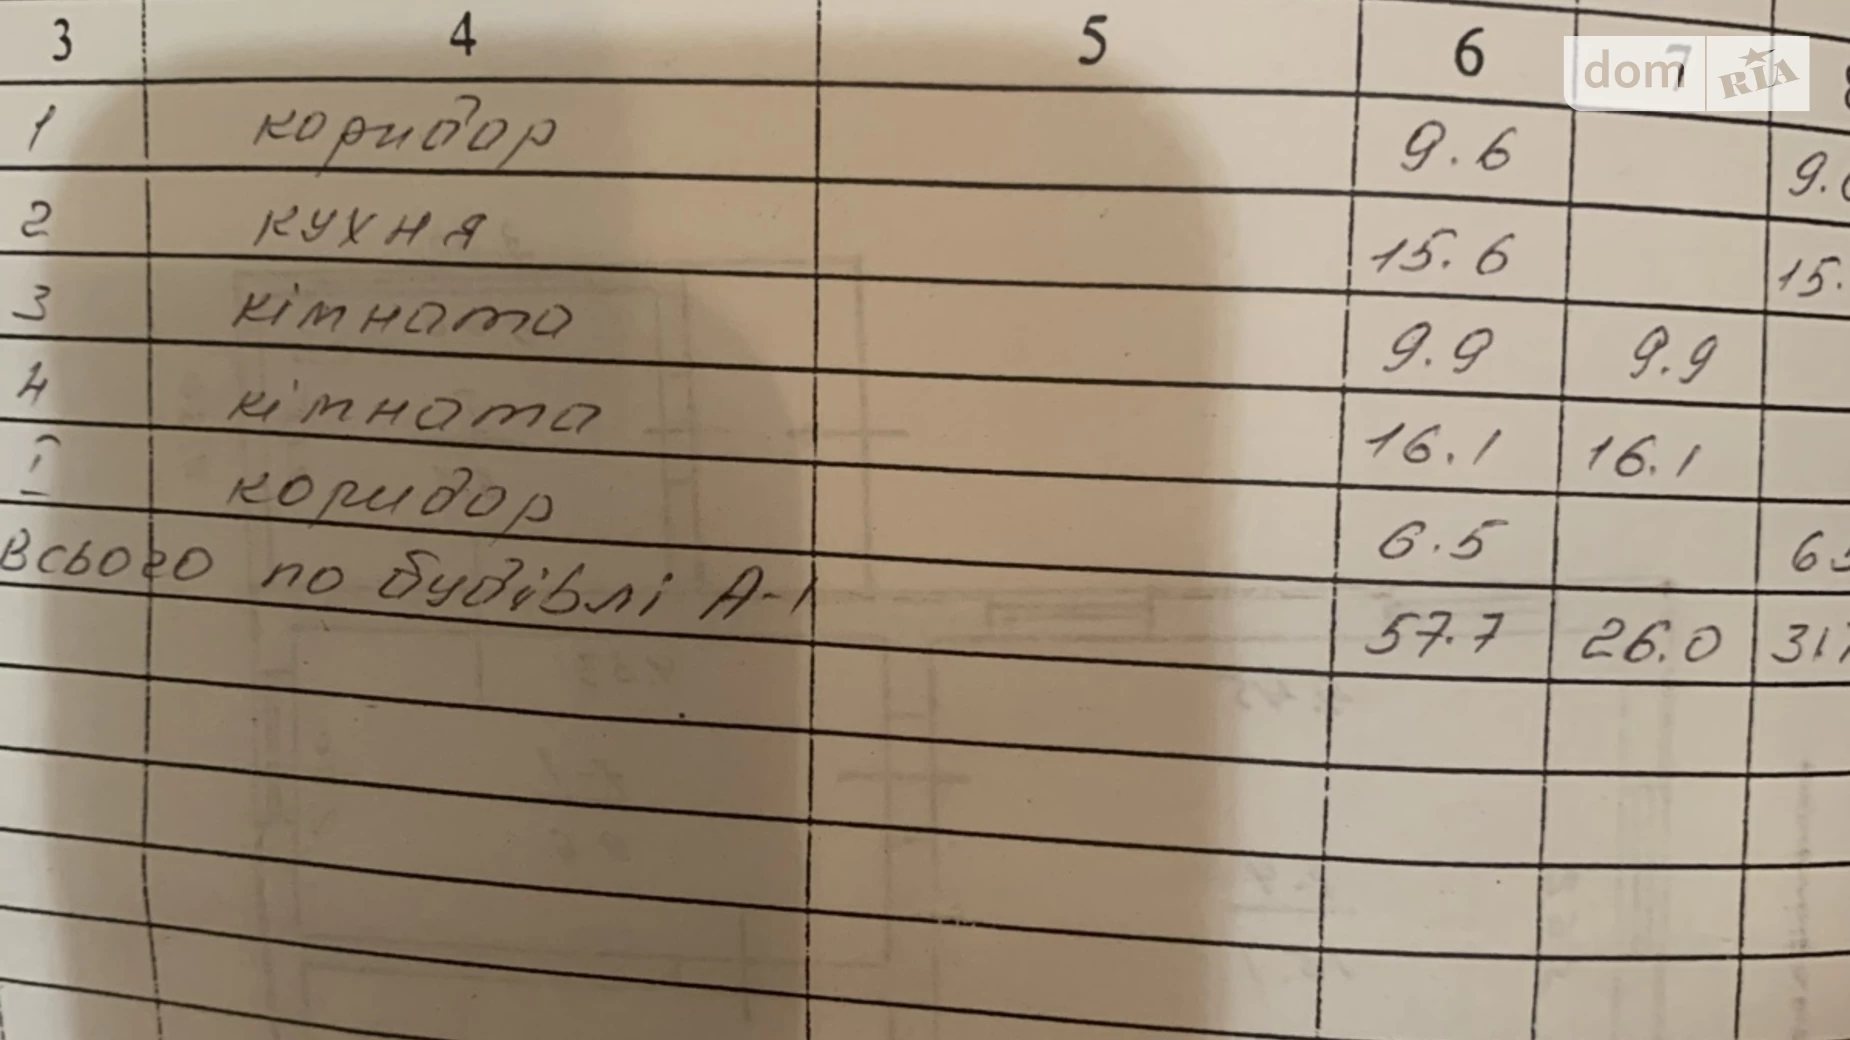 3 4 5 6 7
dom RIA
1 коридор 9.6
2 кухня 15.6 15.
3 кімната 9.9 9.9
4 кімната 16.1 16.1
I коридор 6.5
Всього по будівлі А-1 57.7 26.0